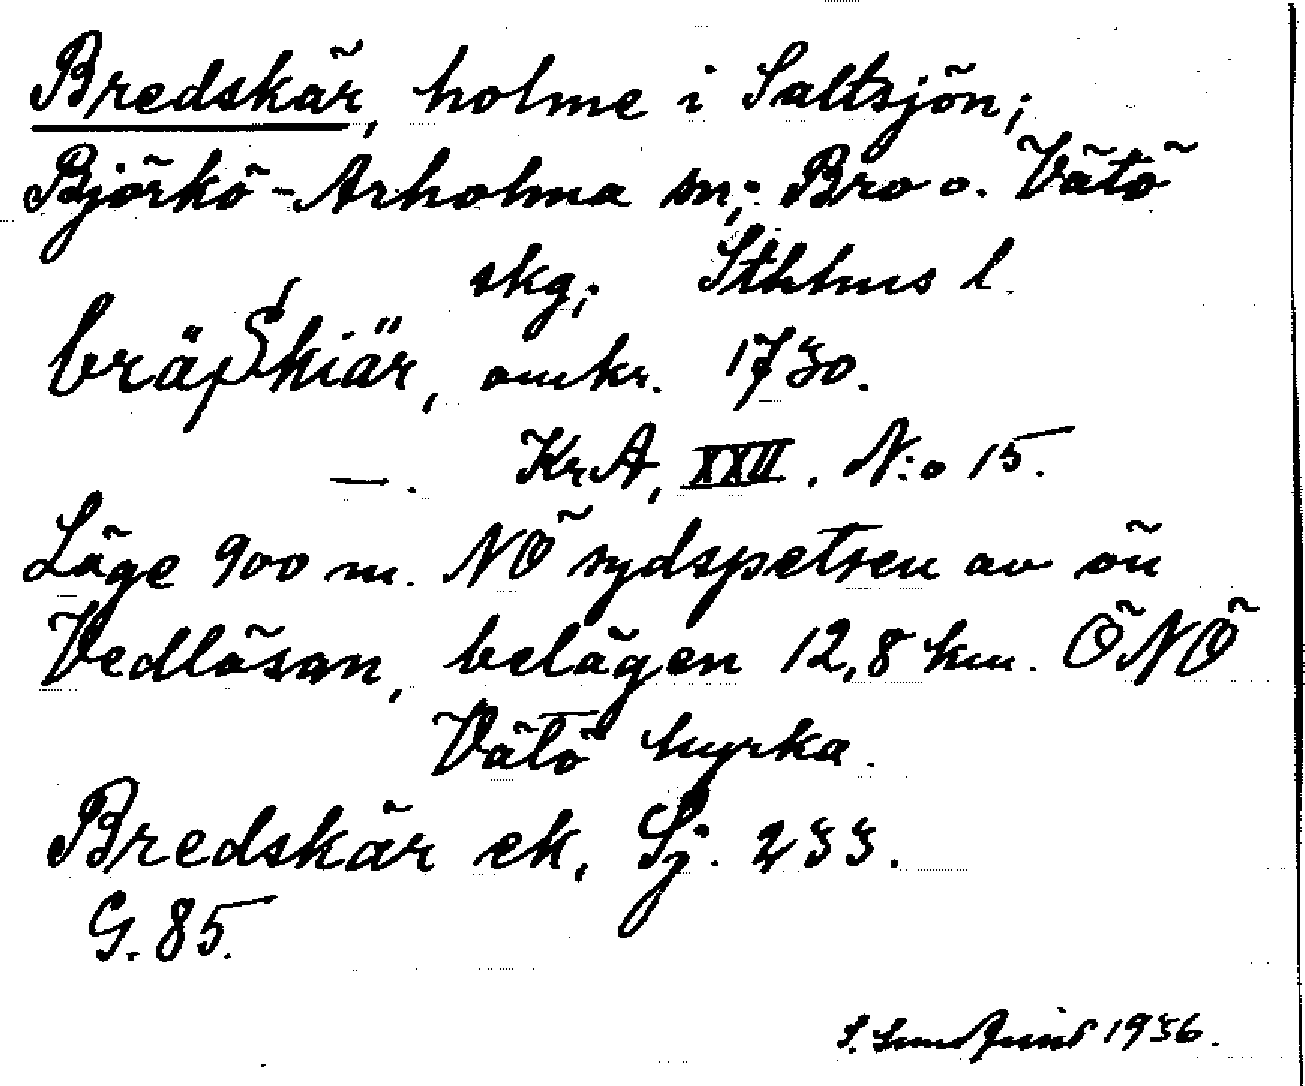 Bredskär, holme i Saltsjön;
Björkö-Arholma sn; Bro o. Vätö
skg; Sthlms l.
bräpskiär, omkr. 1730.
—. KrA, XXII. N:o 15.
Läge 900 m. NÖ sydspetsen av ön
Vedlösan, belägen 12,8 km. ÖNÖ
Vätö kyrka.
Bredskär ek. Sj. 233.
G. 85.
S. 1936.